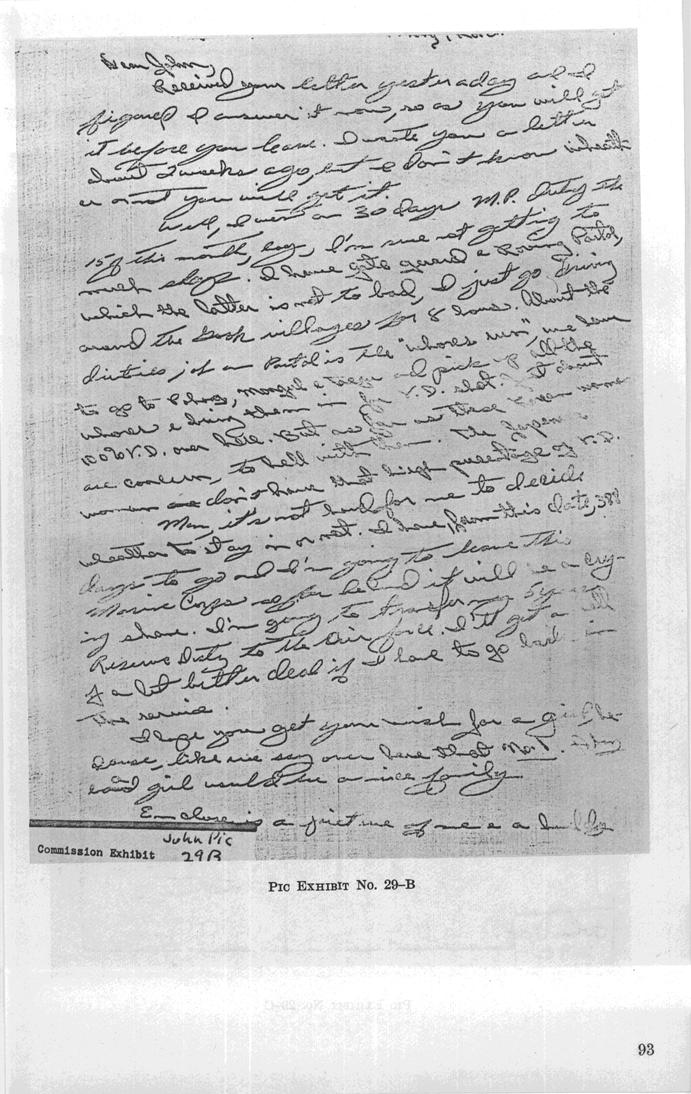 Dear John,
Received your letter yesteraday and I
figured I answer it now, so as you will get
it before you leave. I wrote you a letter
about 2 weeks ago, but I don't know wheath
er or not you will get it.
Well, I went on 30 days M.P. Duty the
15 of this month, boy, I'm sure not getting to
much sleep. I have gate guard & Roving Patrol,
which the latter is not to bad, I just go driving
around the Gook villages for 8 hours. About the
dirties job on Patrol is the "whores run", we have
to go to and pick up all the
whores & bring them in for V.D. shot. about
100% V.D. over here. But as far as these women
are concern, to hell with them. The Japanese
woman don't have that high precentage of V.D.
Man, it's not hard for me to decide
wheather to stay in or not. I have, from this date, 388
days to go and I'm going to leave this
Marine Corps so far behind it will be a cry-
ing shame. I'm going to transfer my 5 years
Reserve Duty to the Air force. I'll get a
of a lot better deal if I have to go back in
the service.
I hope you get your wish for a girl be-
cause, like we say over here that No. 1. A boy
and girl would be a nice family
Enclose is a picture of me & a buddy
John Pic
Commission Exhibit 29B
PIC EXHIBIT No. 29–B
93